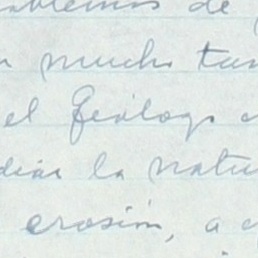 oblemas de
mucho tan
el Geólogo
diar la natu
erosión, a